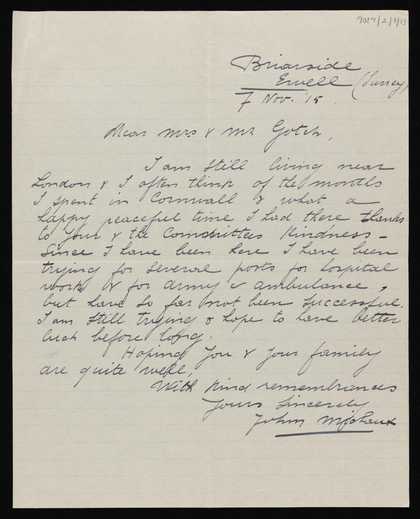 Briarside
Ewell (Surrey)
7 Nov. '15.
Dear Mrs & Mr Gotch,
I am still living near
London & I often think of the months
I spent in Cornwall & what a
happy peaceful time I had there thanks
to your & the Committees kindness –
Since I have been here I have been
trying for several posts for hospital
work & for army & ambulance,
but have so far not been successful.
I am still trying & hope to have better
luck before long.
Hoping you & your family
are quite well,
With kind remembrances
Yours Sincerely